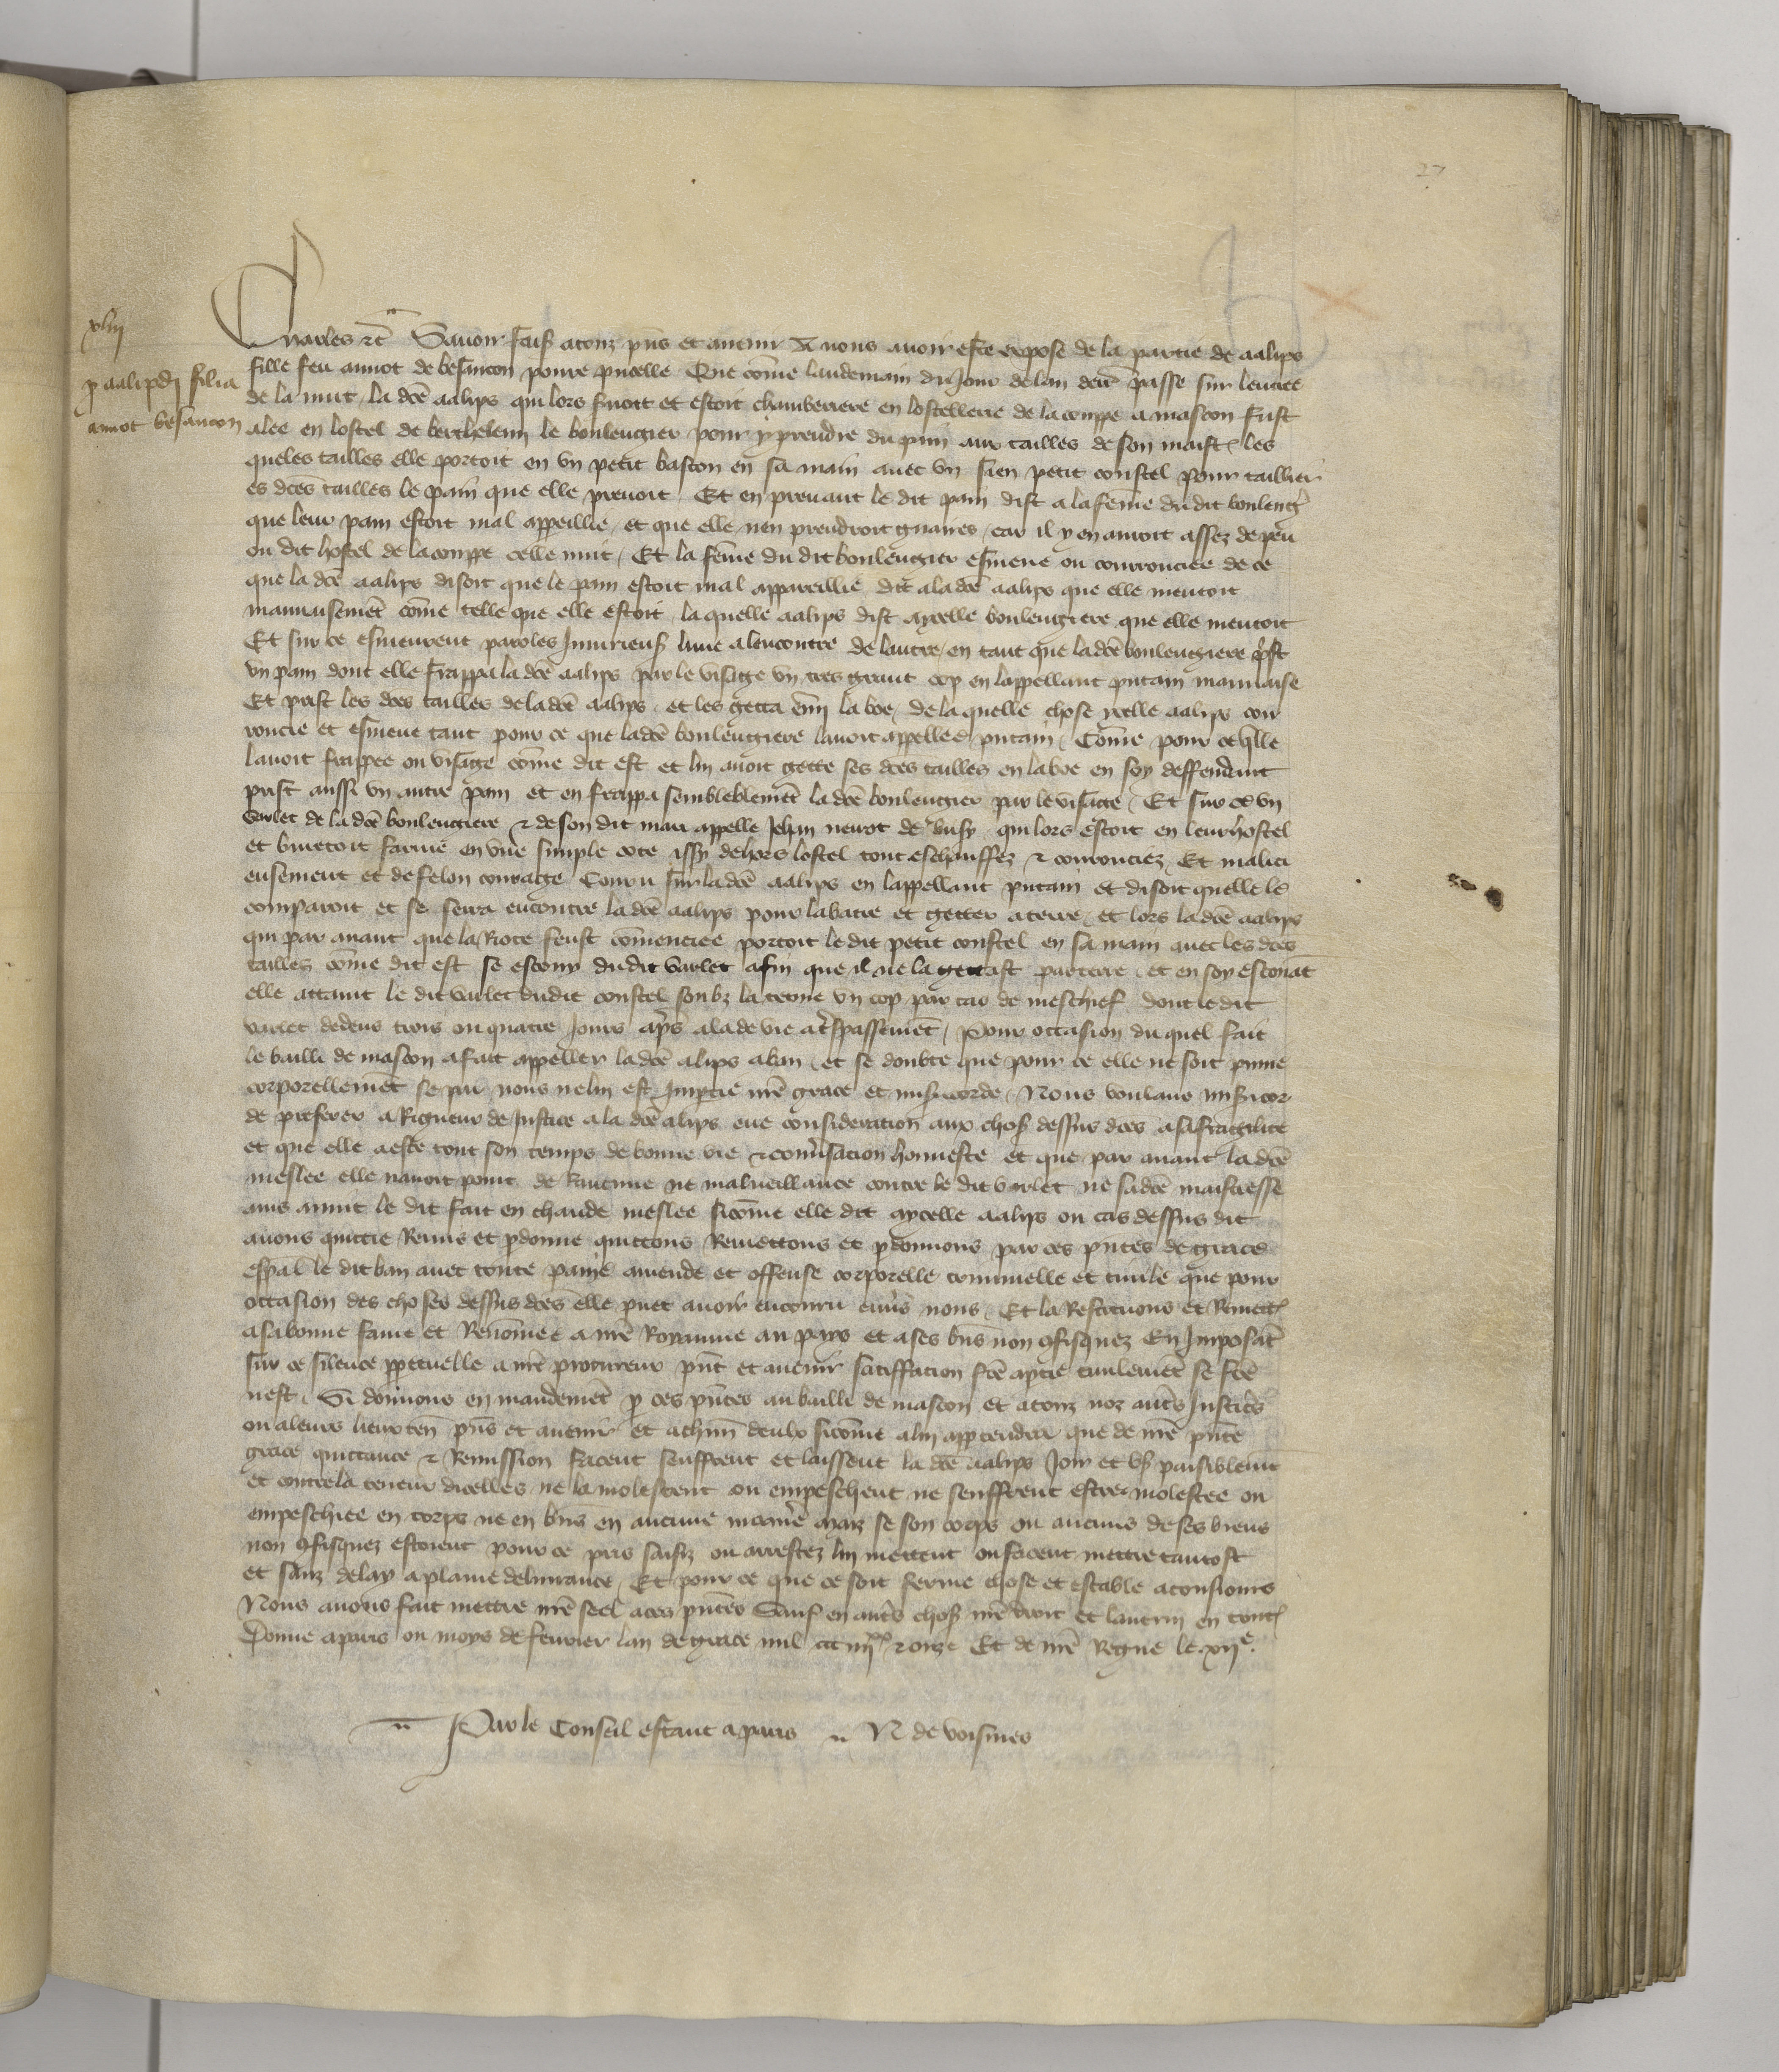 27
xliij
p aalipdj filia
annot besancon
Charles etc Savoir faiſ atouz pñs et avenir A nous avoir eſte expoſe de la partie de aalips
fille feu annot de beſancon povre pucelle Que cõme landemain du Jour de lan derr̃ paſſe ſur leuree
de la nuit la dc̃e aalips qui lors ſervoit et eſtoit chamberiere en loſtellerie de la couppe a maſcon fuſt
alee en loſtel de berthelemi le boulengier pour y prendre du pain aux tailles de ſon maiſtr̃ les
queles tailles elle portoit en un petit baſton en ſa main avec un ſien petit couſtel pour taillier
es dc̃es tailles le pain que elle prenoit Et en prenant le dit pain diſt a la fẽme du dit boulengr̃
que leur pain eſtoit mal appeillie et que elle nen prendroit guaires car il y en auroit aſſez de peu
ou dit hoſtel de la couppe celle nuit Et la fẽme du dit boulengier eſmeue ou courrouciee de ce
que la dc̃e aalips diſoit que le pain eſtoit mal appareillie dit ala dc̃e aalips que elle mentoit
mauvaiſemẽt cõme telle que elle eſtoit la quelle aalips diſt aycelle boulengiere que elle mentoit
Et ſur ce eſmeurent paroles Injurieuſ lune alencontre de lautre en tant que ladc̃e boulengiere p̃ſt
un pain dont elle frappa la dc̃e aalips par le viſage un tres grant cop en lappellant putain mauvaiſe
Et priſt les dc̃es tailles deladc̃e aalips et les getta ẽmj la boe de la quelle choſe ycelle aalips cour
rouciee et eſmeue tant pour ce que ladc̃e boulengiere lavoit appellee putain Cõme pour ce q̃lle
lavoit frappee ou viſage cõme dit eſt et lui avoit gette ſes dc̃es tailles en la boe en ſoy deffendant
priſt auſſi un autre pain et en frappa ſemblablemẽt la dc̃e boulengier par le viſaige Et ſur ce un
varlet de la dc̃e boulengiere et de ſon dit mari appelle Jehan nevot de buſy qui lors eſtoit en leur hoſtel
et buretoit farine en une ſimple cote iſſy dehors loſtel tout eſchauffez et courouciez Et malici
euſement et de felon courage Couru ſur ladc̃e aalips en lappellant putain et diſoit quelle le
comparoit et ſe ſerra encontre la dc̃e aalips pour labatre et getter aterre et lors la dc̃e aalips
qui par avant que la Riote feuſt cõmenciee portoit le dit petit couſtel en ſa main avec les dc̃es
tailles cõme dit eſt ſe eſcouy du dit varlet afin que il ne la gettaſt par terre et en ſoy eſcouãt
elle attaint le dit varlet dudit couſtel ſoubz la tetine un cop par cas de meſchief dont le dit
varlet dedens trois ou quatre Jours ap̃s ala de vie a tr̃ſpaſſemẽt Pour occaſion du quel fait
le bailli de maſcon a fait appeller la dc̃e alips aban et ſe doubte que pour ce elle ne ſoit punie
corporellemẽt ſe par nous ne lui eſt Imp̃tie nr̃e grace et miſericorde Nous voulans miſericor
de preferer a Rigueur de Juſtice a la dc̃e alips eue conſideration aux choſ deſſus dc̃es a ſa fragilite
et que elle a eſte tout ſon temps de bonne vie et conv̾ſacion honneſte et que par avant la dc̃e
meſlee elle navoit point de haine ne malveillance contre le dit varlet ne ſadc̃e maiſtreſſe
ains avint le dit fait en chaude meſlee ſicõme elle dit aycelle aalips ou cas deſſus dit
avons quittie Remis et p̱donne quittons Remettons et p̱donnons par ces pñtes de grace
eſpãl le dit ban avec toute paine amende et offenſe corporelle criminelle et civile que pour
occaſion des choſes deſſus dc̃es elle puet avoir encouru env̾s nous Et la Reſtituons et Remett̃
a ſa bonne fame et Renõmee a nr̃e Royaume au pays et a ſes bñs non ꝯfiſquez En Impoſãt
ſur ce ſilence ꝑpetuelle a nr̃e procureur pñt et avenir ſatiffacion fc̃e aptie civilemẽt ſe fc̃e
neſt Si donnons en mandemẽt p̱ ces pñtes au bailli de maſcon et a touz noz aut̃s Juſtic̃s
ou a leurs lieuxteñ pñs et avenir et achũn deulx ſicõme alui apptendra que de nr̃e pñte
grace quittance et Remiſſion facent ſeuffrent et laiſſent la dc̃e aalips Joir et uſ̃ paiſiblemt
et contre la teneur dicelles ne la moleſtent ou empeſchent ne ſeuffrent eſtre moleſtee ou
empeſchiee en corps ne en bñs en aucune maniẽ maiz ſe ſon corps ou aucuns de ſes biens
non ꝯfiſquez eſtoient pour ce pris ſaiſiz ou arreſtez lui mettent ou facent mettre tantoſt
et ſanz delay a plaine delivrance Et pour ce que ce ſoit ferme choſe et eſtable a touſiours
Nous avons fait mettre nr̃e ſeel aces pñtes Sauf en aut̃s choſ nr̃e droit et lautruy en tout̃
Donne a paris ou moys de fevrier lan de grace mil ccc iiijxx et onze Et de nr̃e Regne le xije.
Par le Conſeil eſtant a paris N de voiſines